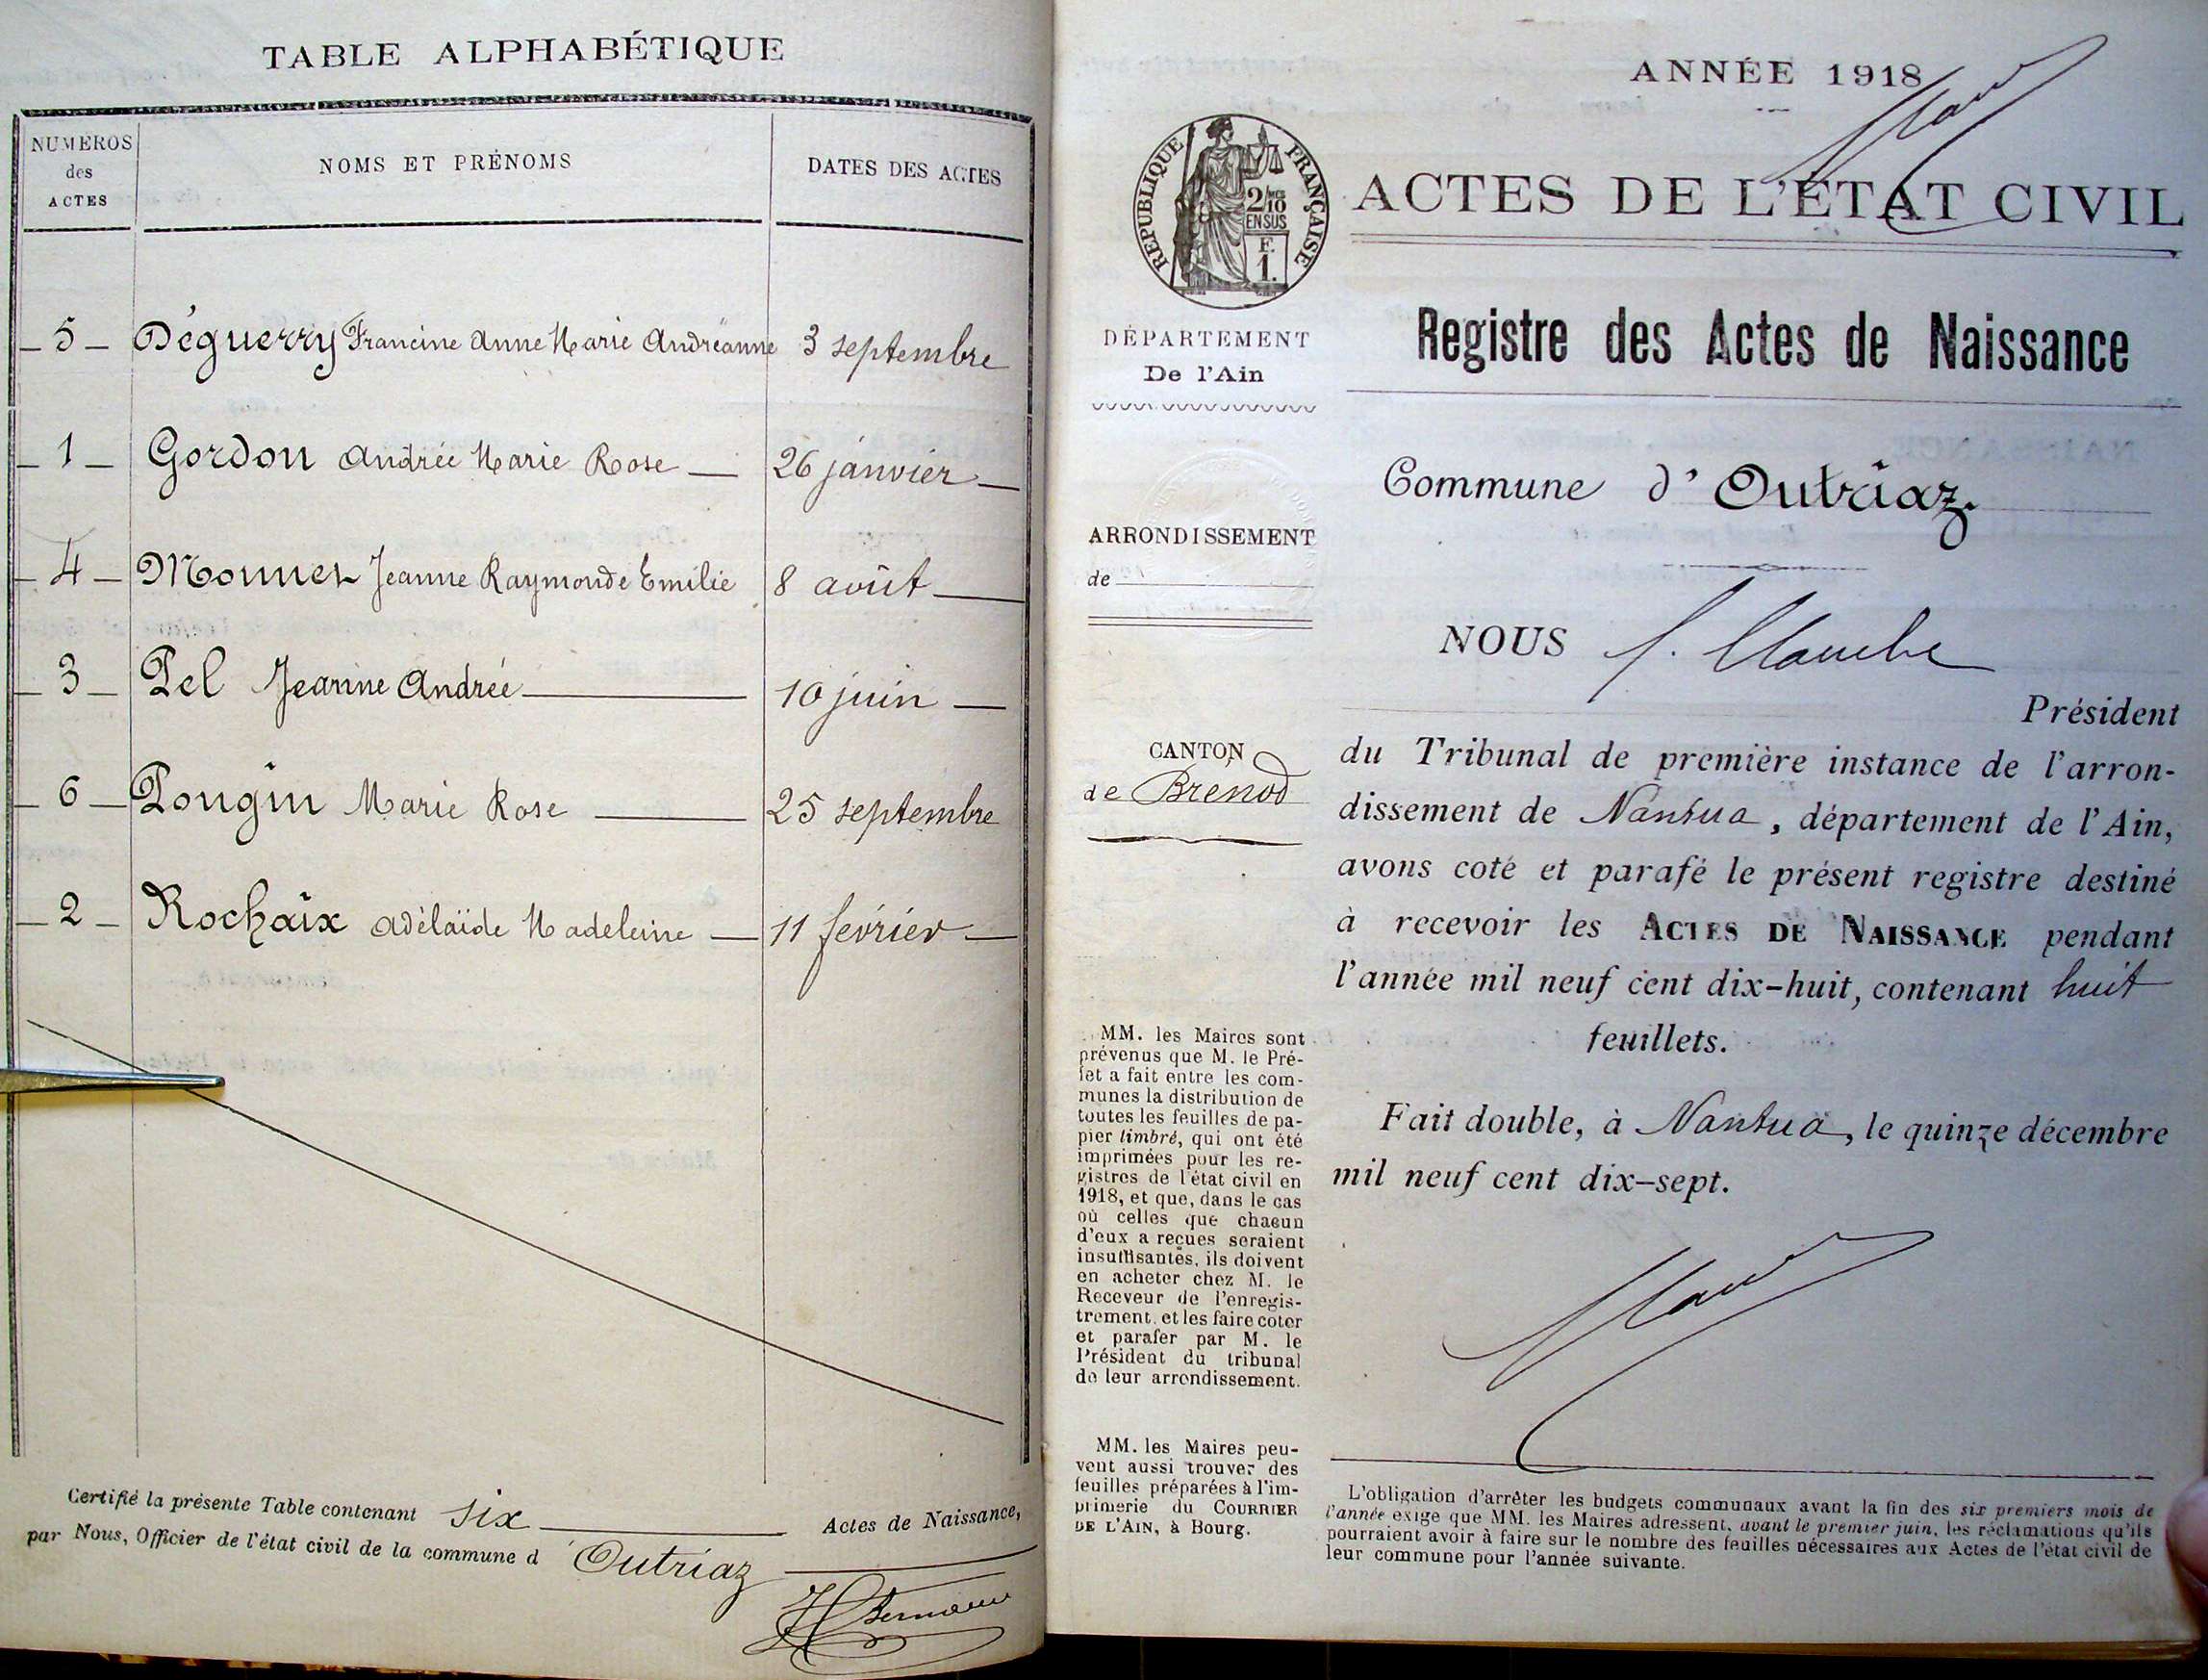 TABLE ALPHABÉTIQUE
NUMÉROS des ACTES
NOMS ET PRÉNOMS
DATES DES ACTES
5 Déguerry Francine Anne Marie Andréanne 3 septembre
1 Gordon Andrée Marie Rose 26 janvier
4 Monnet Jeanne Raymonde Emilie 8 août
3 Pel Jeanine Andrée 10 juin
6 Pougin Marie Rose 25 septembre
2 Rochaix Adélaïde Madeleine 11 février
Certifié la présente Table contenant six Actes de Naissance,
par Nous, Officier de l'état civil de la commune d'Outriaz
ANNÉE 1918
RÉPUBLIQUE FRANÇAISE
2/10 EN SUS
F. 1.
ACTES DE L'ÉTAT CIVIL
DÉPARTEMENT
De l'Ain
Registre des Actes de Naissance
Commune d'Outriaz.
ARRONDISSEMENT
de
NOUS
Président
CANTON
de Brénod
du Tribunal de première instance de l'arron-
dissement de Nantua, département de l'Ain,
avons coté et parafé le présent registre destiné
à recevoir les ACTES DE NAISSANCE pendant
l'année mil neuf cent dix-huit, contenant huit
feuillets.
Fait double, à Nantua, le quinze décembre
mil neuf cent dix-sept.
MM. les Maires sont
prévenus que M. le Pré-
fet a fait entre les com-
munes la distribution de
toutes les feuilles de pa-
pier timbré, qui ont été
imprimées pour les re-
gistres de l'état civil en
1918, et que, dans le cas
où celles que chacun
d'eux a reçues seraient
insuffisantes, ils doivent
en acheter chez M. le
Receveur de l'enregis-
trement, et les faire coter
et parafer par M. le
Président du tribunal
de leur arrondissement.
MM. les Maires peu-
vent aussi trouver des
feuilles préparées à l'im-
primerie du COURRIER
DE L'AIN, à Bourg.
L'obligation d'arrêter les budgets communaux avant la fin des six premiers mois de
l'année exige que MM. les Maires adressent, avant le premier juin, les réclamations qu'ils
pourraient avoir à faire sur le nombre des feuilles nécessaires aux Actes de l'état civil de
leur commune pour l'année suivante.